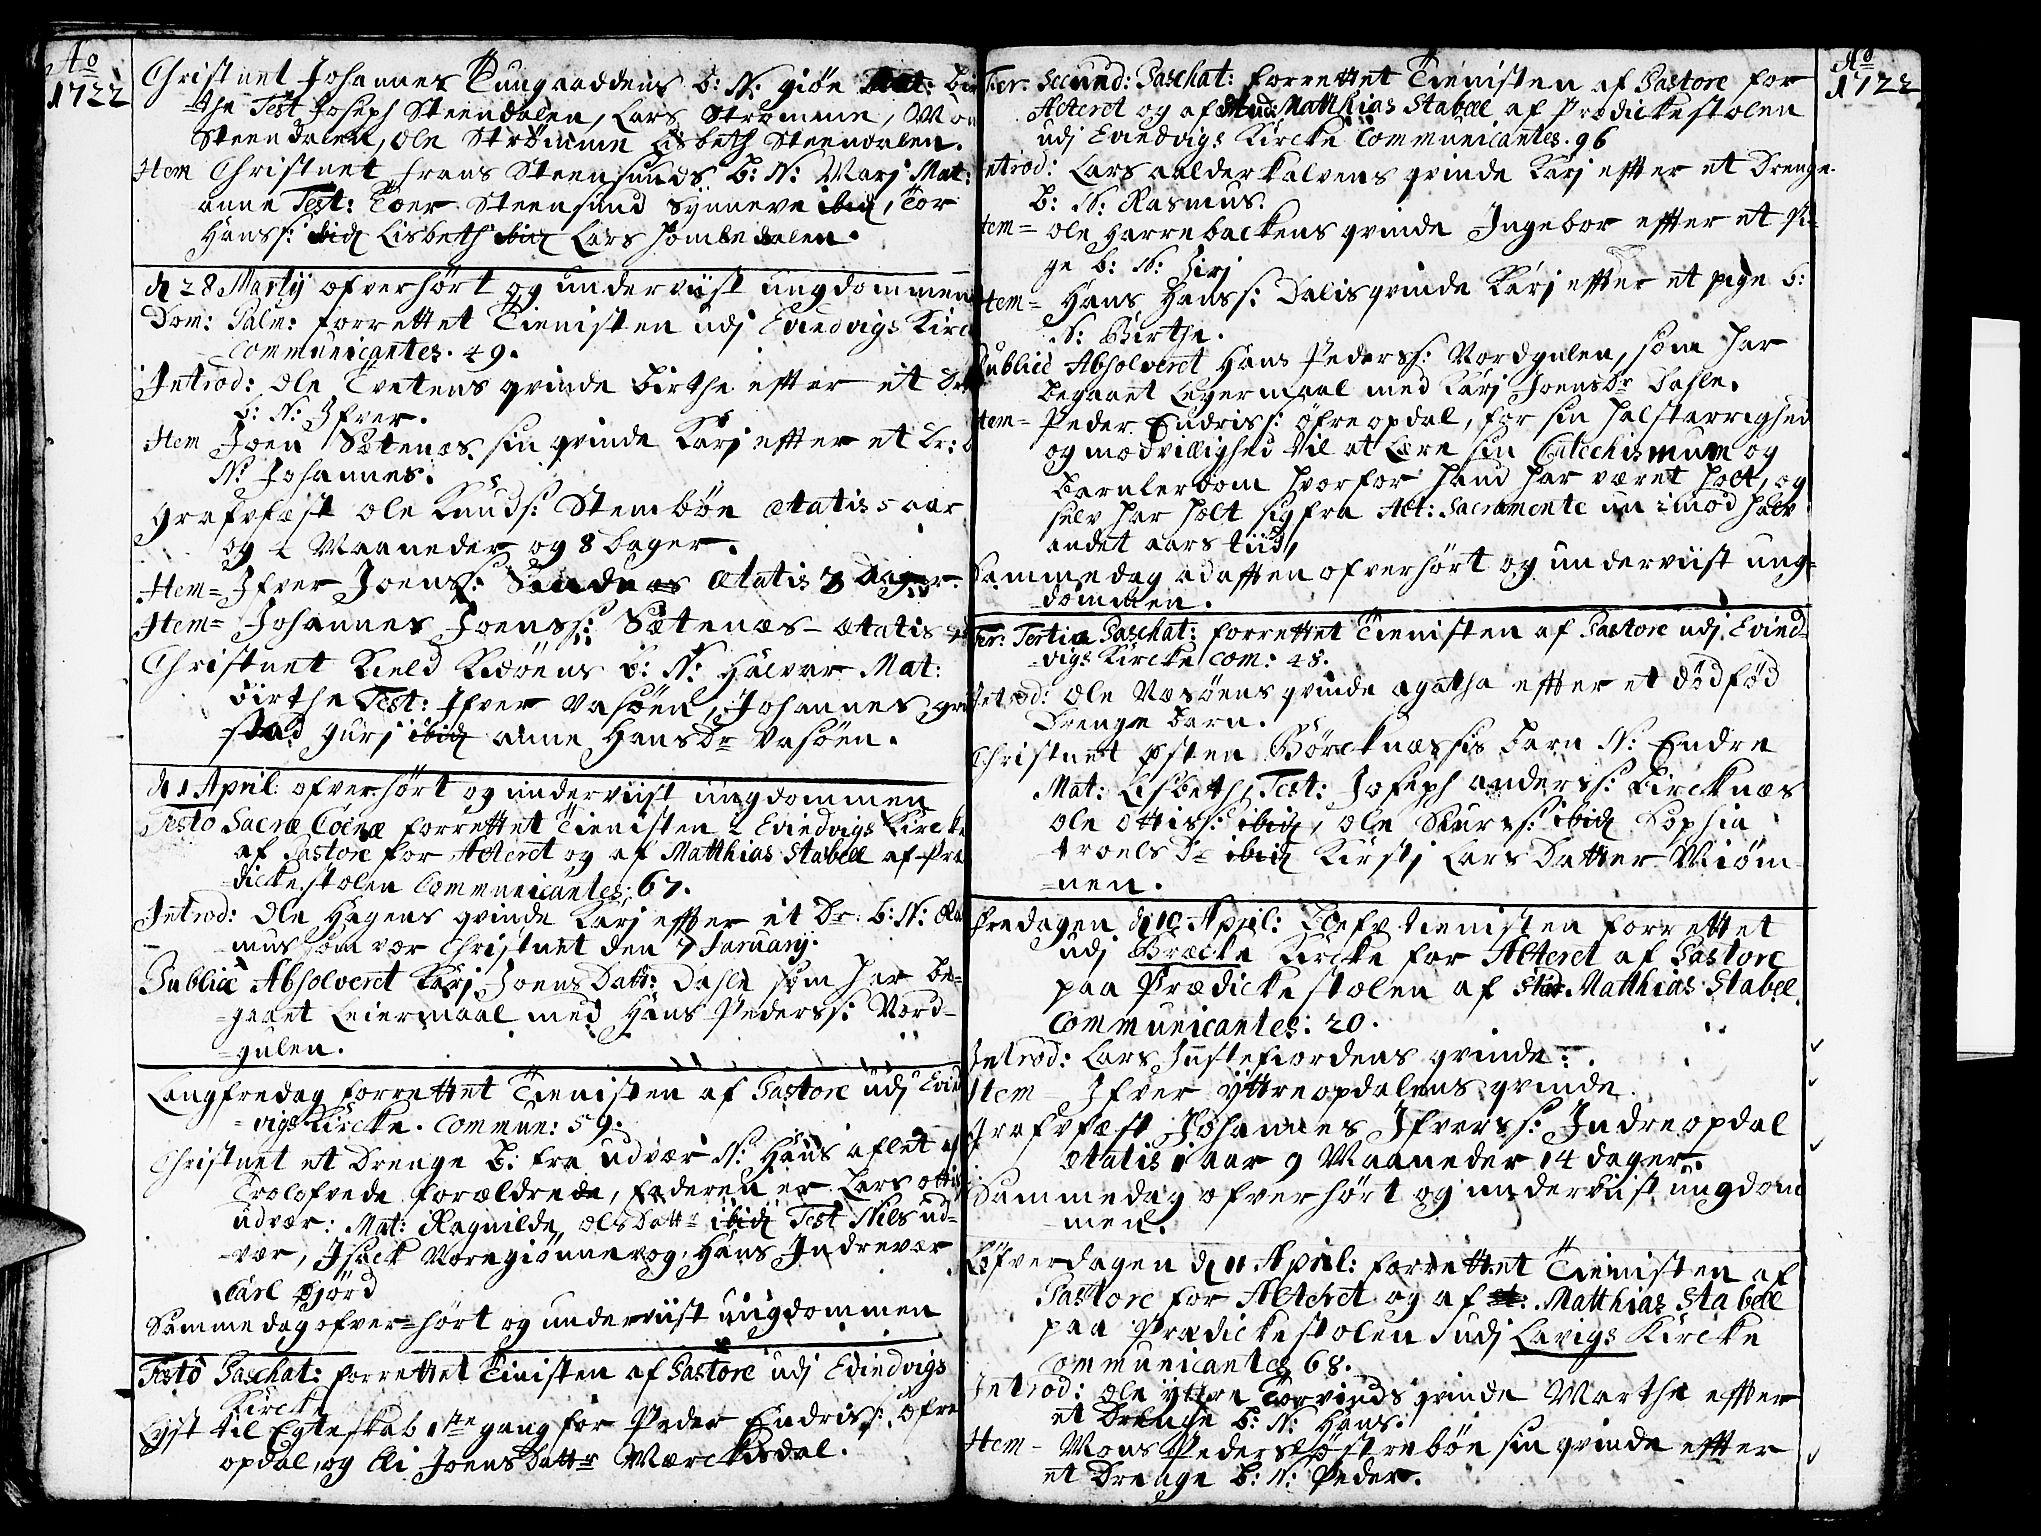 Ao
1722
Christnet Johannes Rungaaddens b: N: giön Mat: bir
the Test Joseph Steendalen, Lars Strømme, Mon
Steendalen, Ole Strømme Lisbeth Steendalen.
Item Christnet frans Steensunds b: N: Marj Mat:
anne Test: Toer Steensund Synneve ibid, Tor
Hanss: ibid Lisbeth ibid Lars Hombedalen.
d 28 Martij ofverhört og underviist ungdommen
Dom: Palm: forrettet Tienisten udj Evindvigs Kirck
Communicantes. 49.
Introd: Ole Tvetens qvinde birthe effter et Dr
b: N: Ifver.
Item Joen Sætenæs sin qvinde Karj effter et Dr: b
N: Johannes.
Grafvfæst Ole Knuds: Stembön ætatis 5 aar
og 2 Maaneder og 8 dager.
Item= Ifver Joenss: ætatis 3 Dager.
Item= Johannes Joenss: Sætenæs - ætatis
Christnet Kield Kidöens b: N: Halvar Mat:
birthe Test: Ifver Vasöen, Johannes gri
stad gurj ibid anne Hans Dr Vasöen.
d 1 April: ofverhört og underviist ungdommen
Festo Sacræ Coenæ forrettet Tienisten i Evindvigs Kircke
af Pastore for Alteret og af Matthias Stabell af Præ
dickestolen Communicantes: 67.
Introd: Ole Hagens qvinde Karj effter et Dr: b: N: Ras
mus som vor Christnet den 7 January.
Publicè Absolveret Karj Joens Datt: Dahle som har be=
=gaaet Leiermaal med Hans Pederss: Nord=
=gulen.
Langfredag forrettet Tienisten af Pastore udj Evin
=vigs Kircke. Commun: 59.
Christnet et Drenge b: fra udvær N: Hans aflet af
Trolofvede forældrede, faderen er Lars ottis
udvær: Mat: Ragnilde Ols Dattr ibid Test Nils ud=
=vær, Isack Noregiönnevog, Hans Indrevær
Carl fjörd
Samme dag ofver=hört og underviist ungdommen
Festo Paschat: forrettet Tinisten af Pastore udj Evindvigs
Kircke
Lyst til Egteskab 1ste gang for Peder Endriss: Öfre
opdal, og Eli Joens Dattr Værckisdal.

Ao
1722
Fer: Secund: Paschat: forrettet Tienisten af Pastore for
Alteret og af Matthias Stabell af Prædickestolen
udj Evindvigs Kircke Communicantes. 96
Introd: Lars aalderkalvens qvinde Karj effter et Drenge
b: N: Rasmus.
Item= Ole Harrebackens qvinde Ingebor effter et Pi=
ge b: N: Sirj
Item= Hans Hanss: Dalis qvinde Karj effter et pige b:
N: Birthe.
Publicè Absolveret Hans Pederss: Nordgulen, som har
begaaet Leyermaal med Karj Joens Dr Dahle.
Item= Peder Endriss: öfreopdal, for sin halstarrighed
og modvillighed til at lære sin Catechismum og
barnlerdom hvorfor hand har været holt, og
selv har holt sig fra Alt: Sacramente nu imod halv
andet aars tiid,
Samme dag adafften ofverhört og underviist ung=
=dommen.
Fer: Tertia Paschat: forrettet Tienisten af Pastore udj Evind=
=vigs Kircke Com: 48.
Introd: Ole Vasöens qvinde agatha effter et dödföd
Drenge barn.
Christnet östen Börcknæssis barn N: Endre
Mat: Lisbeth, Test: Joseph anderss: Bircknæs
Ole Ottiss: ibid, Ole Siurss: ibid Sophia
troels Dr ibid Kirstj Lars Datter Miöm=
=nen.
Fredagen d 10 April: Tienisten forrettet
udj Bræcke Kircke for Alteret af Pastore
paa Prædickestolen af Matthias Stabel.
Communicantes: 20.
Introd: Lars Instefiordens qvinde.
Item Ifver yttreopdalens qvinde.
Grafvfæst Johannes Ifverss: Indreopdal
ætatis 1 aar 9 Maaneder 14 dager.
Sammedag ofverhört og underviist ungdom
=men.
Löfverdagen d 11 April: forrettet Tienisten af
Pastore for Alteret og af Matthias Stabell
paa Prædickestolen udj Lavigs Kircke
Communicantes 68.
Introd: Ole yttre Torvunds qvinde Marthe effter
et Drenge b: N: Hans.
Item- Mons Peders östrebön sin qvinde effter
et Drenge b: N: Peder.